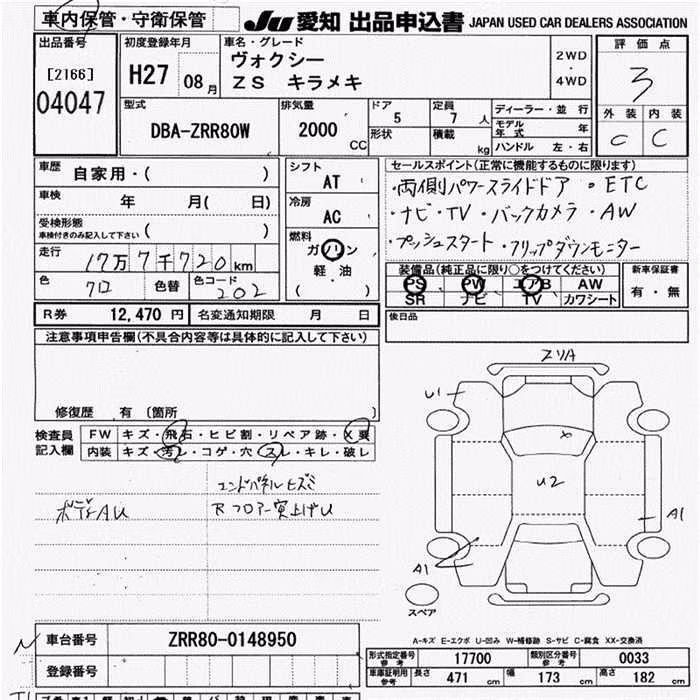 車内保管・守衛保管
JU 愛知 出品申込書 JAPAN USED CAR DEALERS ASSOCIATION
出品番号
[2166]
04047
初度登録年月
H27 08月
車名・グレード
ヴォクシー
ZS キラメキ
2WD
・
4WD
評価点
3
外装 内装
C C
型式
DBA-ZRR80W
排気量
2000
CC
ドア
5
定員
7 人
形状
積載
kg
ディーラー・並行
モデル年式 年
ハンドル 左・右
車歴
自家用・( )
車検
年 月( 日)
受検形態
車検付きのみ記入して下さい ( )
走行
17万7千720km
色
クロ
色替
色コード
202
シフト
AT
冷房
AC
燃料
ガソリン
軽・油
( )
セールスポイント(正常に機能するものに限ります)
・両側パワースライドドア ・ETC
・ナビ・TV・バックカメラ・AW
・プッシュスタート・フリップダウンモニター
装備品(純正品に限り○をつけてください)
PS PW エアB AW
SR ナビ TV カワシート
新車保証書
有・無
R券 12,470 円
名変通知期限 月 日
後日品
注意事項申告欄(不具合内容等は具体的に記入して下さい)
修復歴 有 〔箇所 〕
検査員
記入欄
FW キズ・飛石・ヒビ割・リペア跡・X要
内装 キズ・汚レ・コゲ・穴・スレ・キレ・破レ
エンドパネルヒズミ
ボデーAU
Rフロアー突上げU
スリA
U1
×
U2
A1
A1
スペア
A-キズ E-エクボ U-凹み W-補修跡 S-サビ C-腐食 XX-交換済
車台番号
ZRR80-0148950
登録番号
形式指定番号
参考
17700
類別区分番号
参考
0033
車庫証明用
参考
長さ 471 cm
幅 173 cm
高さ 182 cm